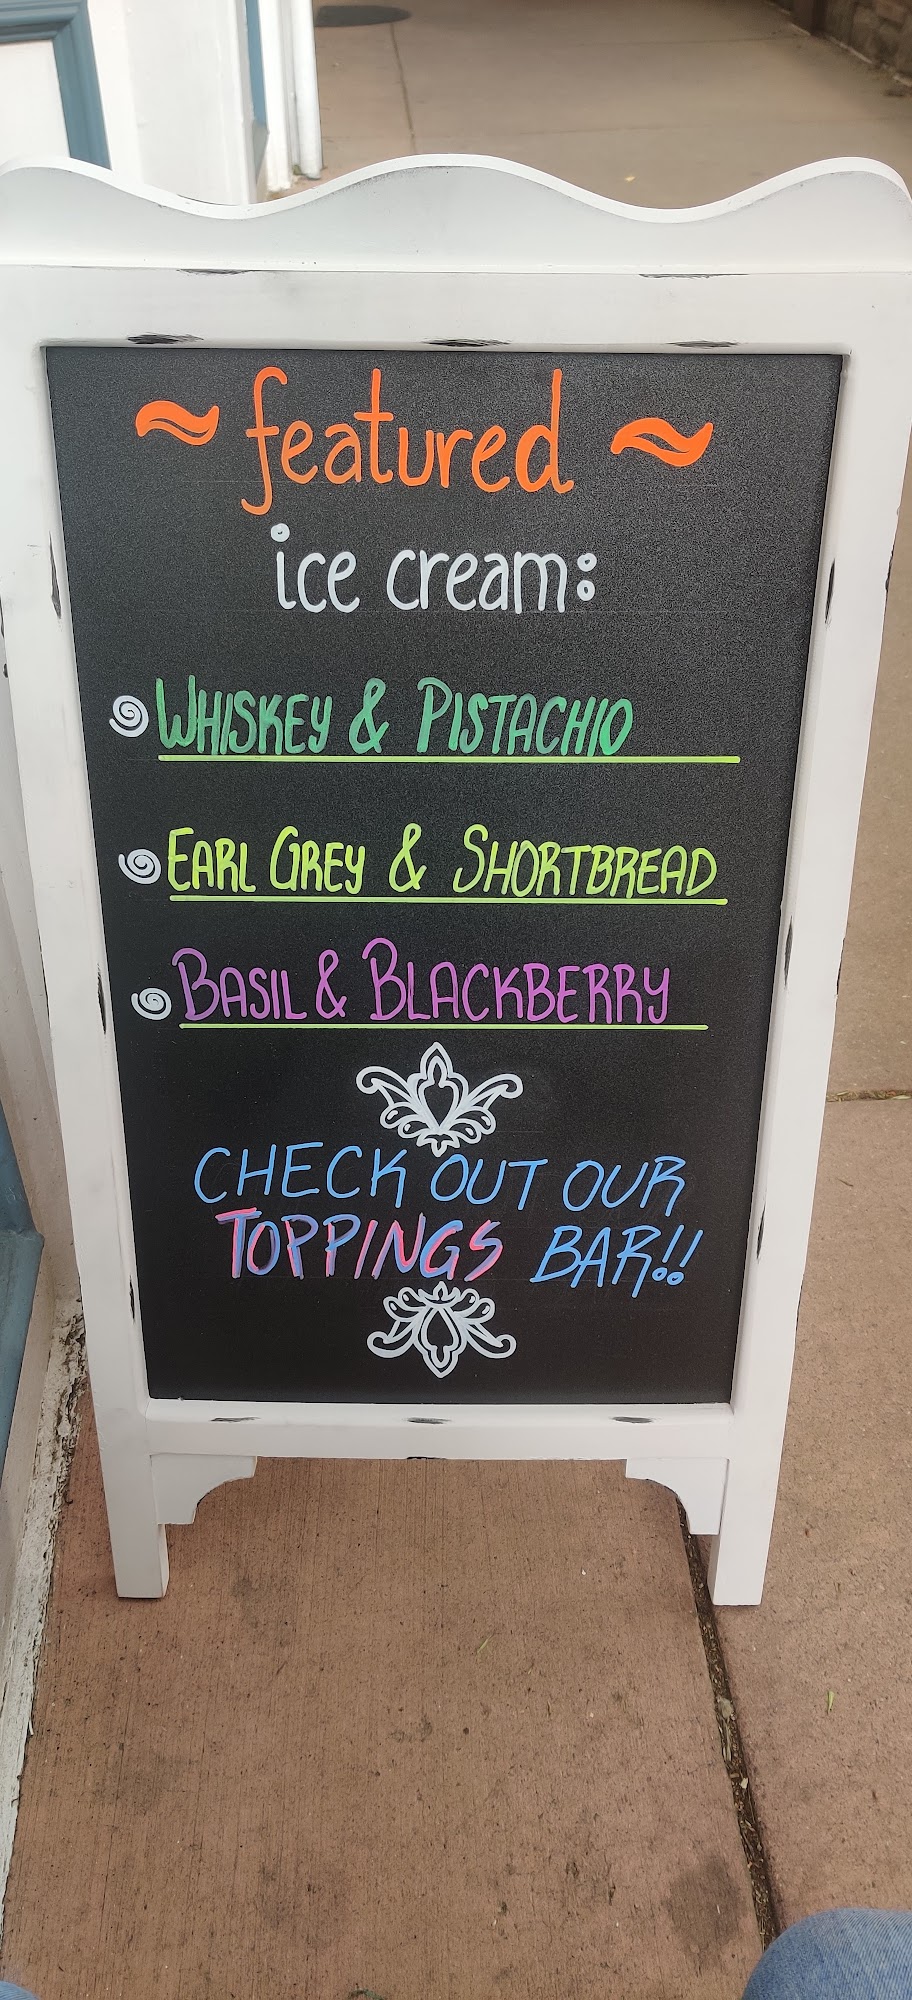 ~ featured ~
ice cream:
WHISKEY & PISTACHIO
EARL GREY & SHORTBREAD
BASIL & BLACKBERRY
CHECK OUT OUR
TOPPINGS BAR!!